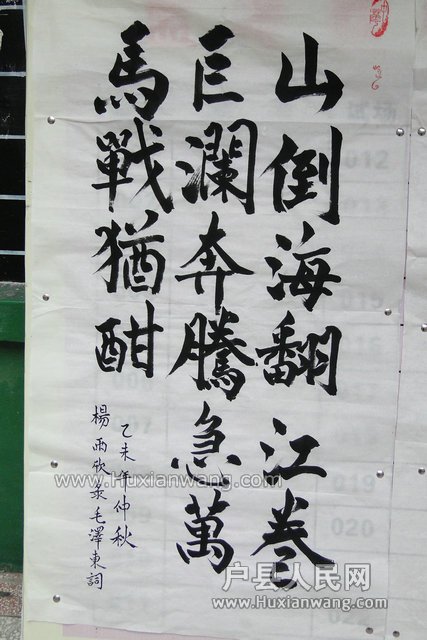 山倒海翻江卷
巨瀾奔騰急萬
馬戰猶酣
乙未年仲秋
楊雨欣录毛澤東詞
www.Huxianwang.com
户县人民网
www.Huxianwang.com
012
019
020